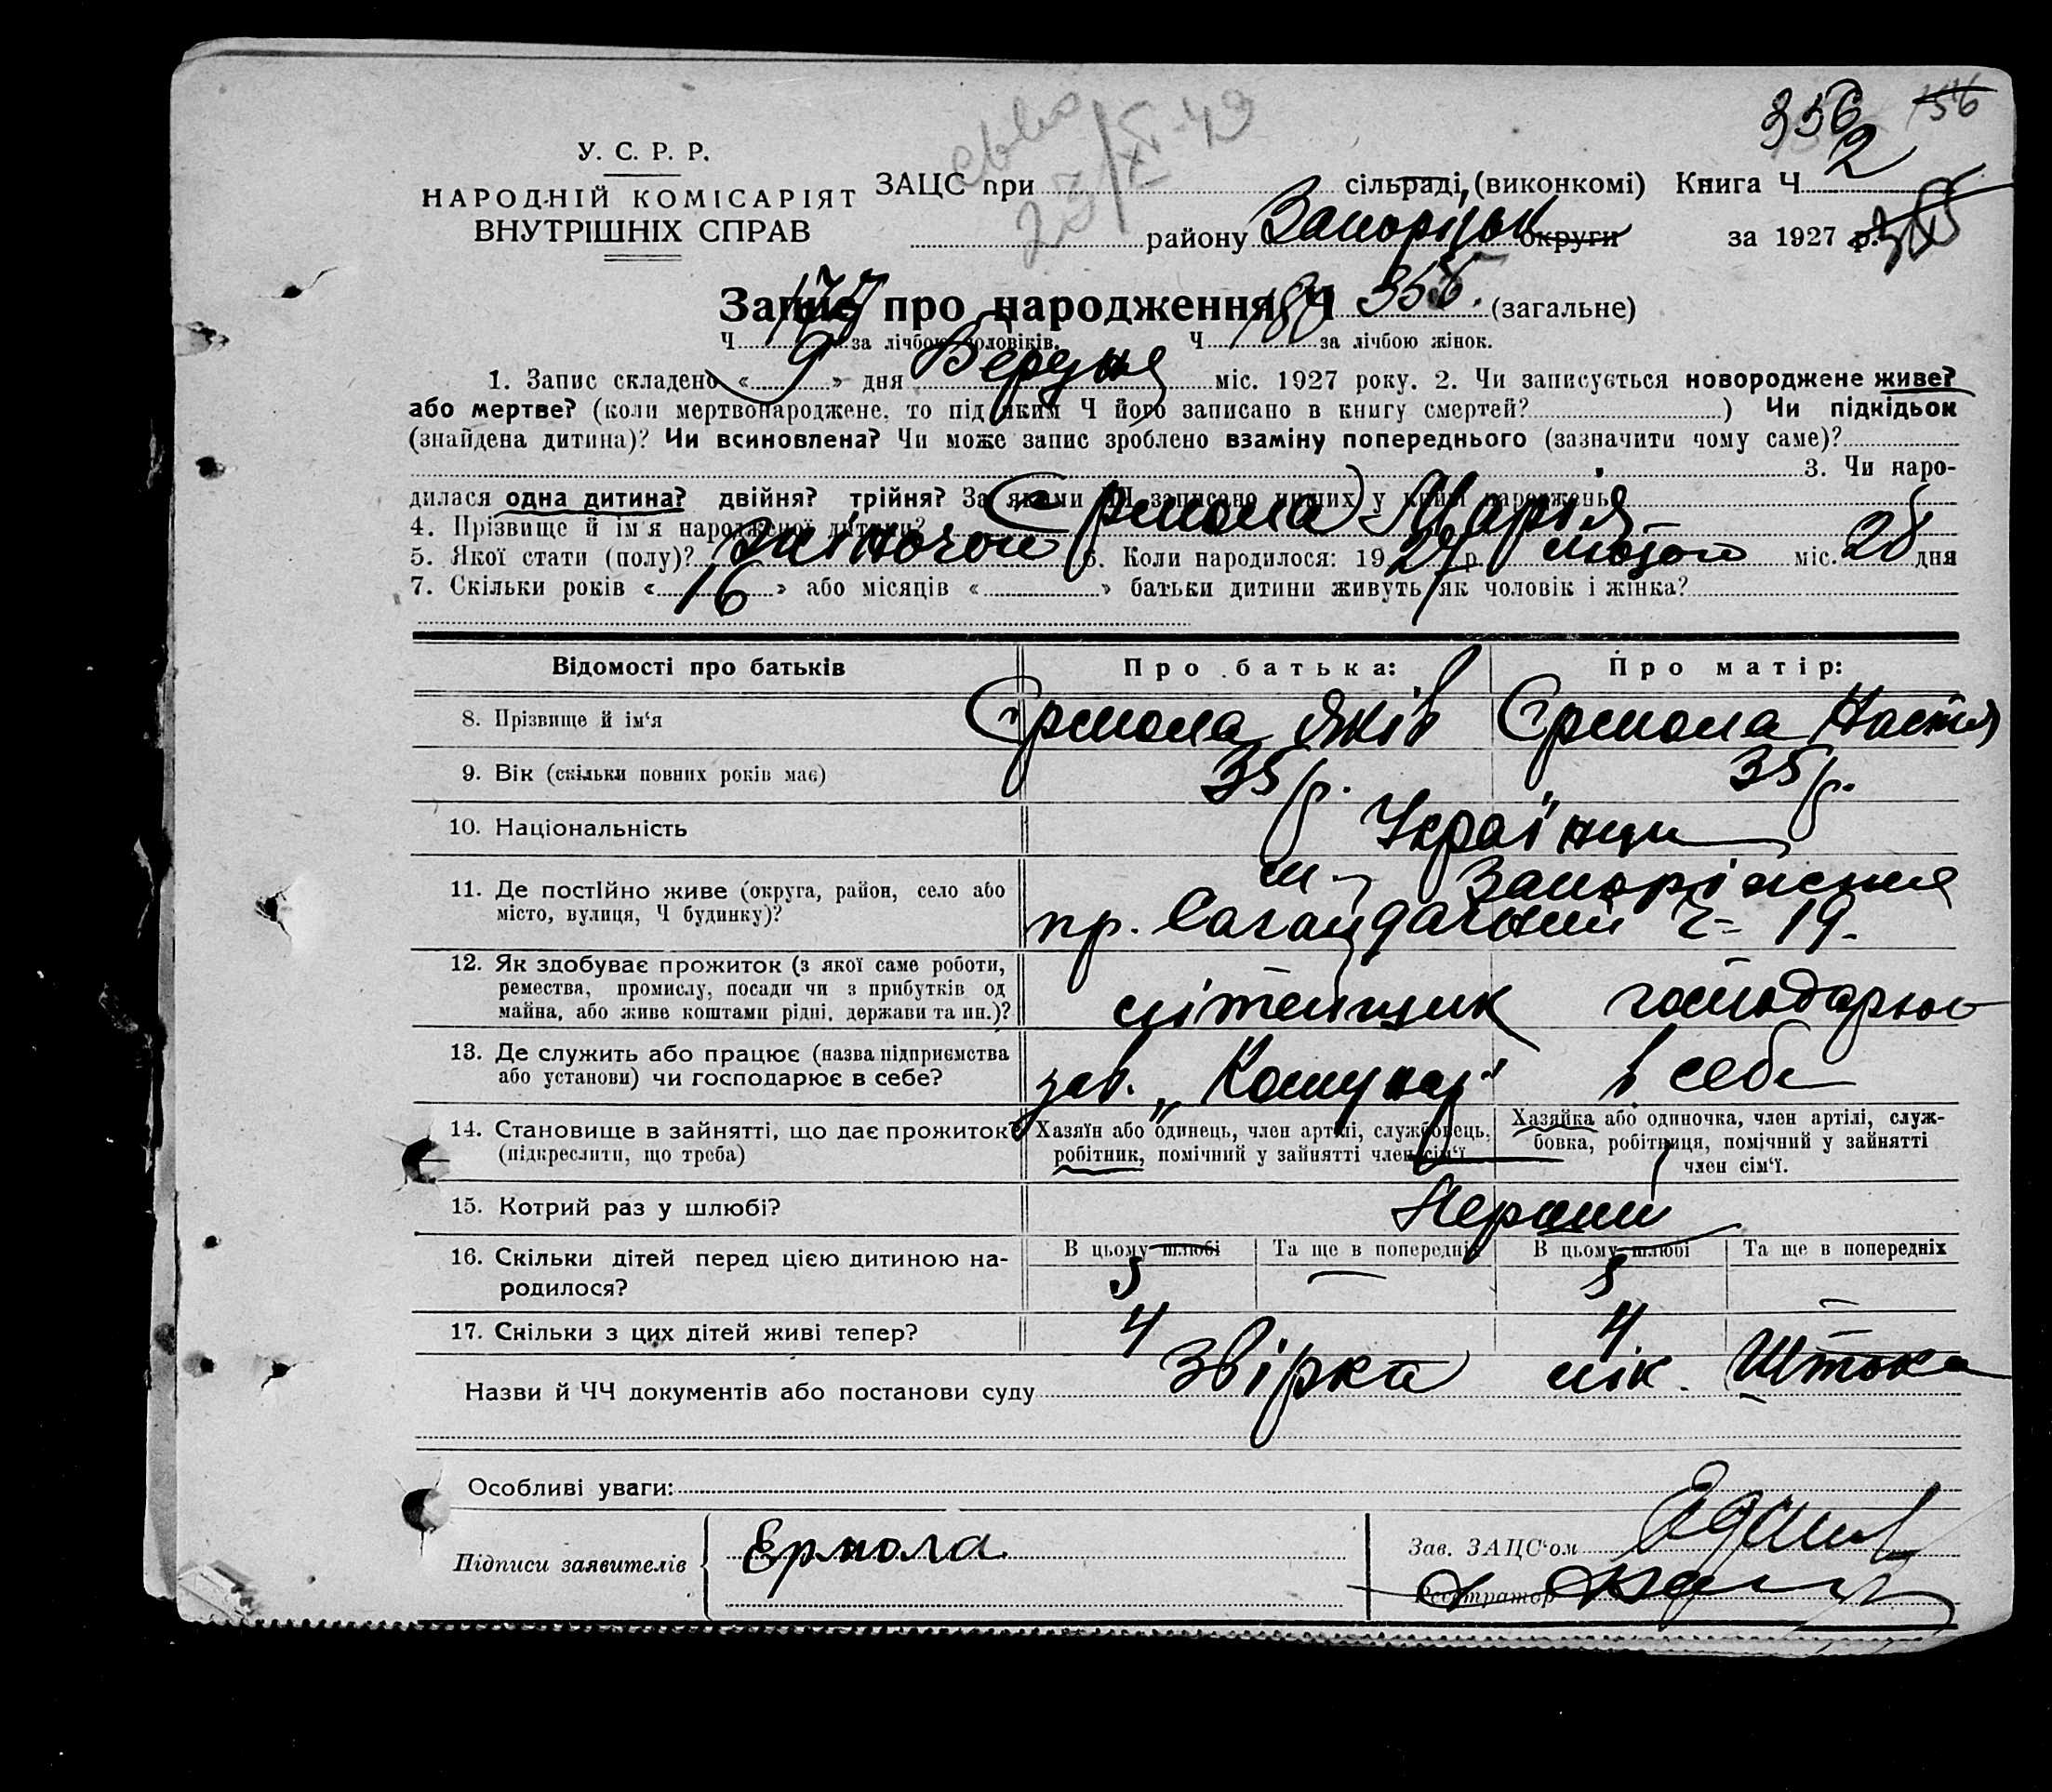 356 156
У. С. Р. Р.
НАРОДНІЙ КОМІСАРІЯТ
ВНУТРІШНІХ СПРАВ
23/XI-49
ЗАЦС при сільраді, (виконкомі) Книга Ч 2
району Запоріжськ округи за 1927 р.
Запис про народження Ч 356. (загальне)
Ч 177 за лічбою чоловіків. Ч 180 за лічбою жінок.
1. Запис складено « 9 » дня Березня міс. 1927 року. 2. Чи записується новороджене живе?
або мертве? (коли мертвонароджене, то під яким Ч його записано в книгу смертей? ) Чи підкідьок
(знайдена дитина)? Чи всиновлена? Чи може запис зроблено взаміну попереднього (зазначити чому саме)?
3. Чи наро-
дилася одна дитина? двійня? трійня? За якими ЧЧ записано инших у книзі народжень
4. Прізвище й ім'я народженої дитини? Єрмола Марія
5. Якої стати (полу)? Жіночої 6. Коли народилося: 1927 р. лютого міс. 28 дня
7. Скільки років « 16 » або місяців « » батьки дитини живуть як чоловік і жінка?
Відомості про батьків Про батька: Про матір:
8. Прізвище й ім'я Єрмола Яків Єрмола Настя
9. Вік (скільки повних років має) 35 р. 35 р.
10. Національність Українци
11. Де постійно живе (округа, район, село або м. Запоріжжя
місто, вулиця, Ч будинку)? пр. Сагайдачний ч= 19.
12. Як здобуває прожиток (з якої саме роботи,
ремества, промислу, посади чи з прибутків од
майна, або живе коштами рідні, держави та ин.)? літейщик господарює
13. Де служить або працює (назва підприємства
або установи) чи господарює в себе? зав. „Комунар" в себе
14. Становище в зайнятті, що дає прожиток? Хазяїн або одинець, член артілі, службовець, Хазяйка або одиночка, член артілі, служ-
(підкреслити, що треба) робітник, помічний у зайнятті член сім'ї бовка, робітниця, помічний у зайнятті
член сім'ї.
15. Котрий раз у шлюбі? Перший
16. Скільки дітей перед цією дитиною на- В цьому шлюбі Та ще в попередніх В цьому шлюбі Та ще в попередніх
родилося? 5 — 5 —
17. Скільки з цих дітей живі тепер? 4 4 —
Назви й ЧЧ документів або постанови суду Звірка лік.
Особливі уваги:
Підписи заявителів Ермола
Зав. ЗАЦС'ом
Реєстратор